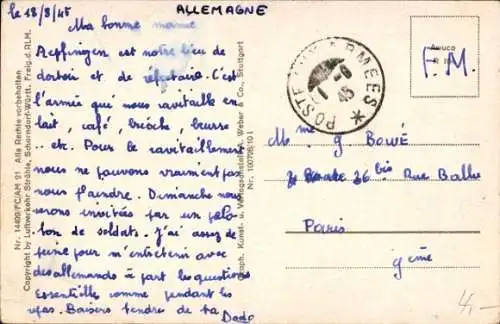 le 18/8/45
ALLEMAGNE
Ma bonne mamie
Aepfingen est notre lieu de
dortoir et de réfectoire. C'est
l'armée qui nous ravitaille en
lait, café, brioche, beurre
etc. Pour le ravitaillement
nous ne pouvons vraiment pas
nous plaindre. Dimanche nous
serons invitées par un pelo-
ton de soldats. J'ai assez de
peine pour m'entretenir avec
des allemands à part les questions
Essentielles comme pendant les
repas. Baisers tendre de ta Dodo
Nr. 14499/FC/AM 91 Alle Rechte vorbehalten
Copyright by Luftverkehr Strähle, Schorndorf-Württ. Freig. d. RLM.
Graph. Kunst- u. Verlagsanstalt J. Weber & Co., Stuttgart
Nr. 100725/10
POSTE AUX ARMEES
1-9
45
F. M.
Mme g Bowé
36 bis Rue Ballu
Paris
9ème
4,-